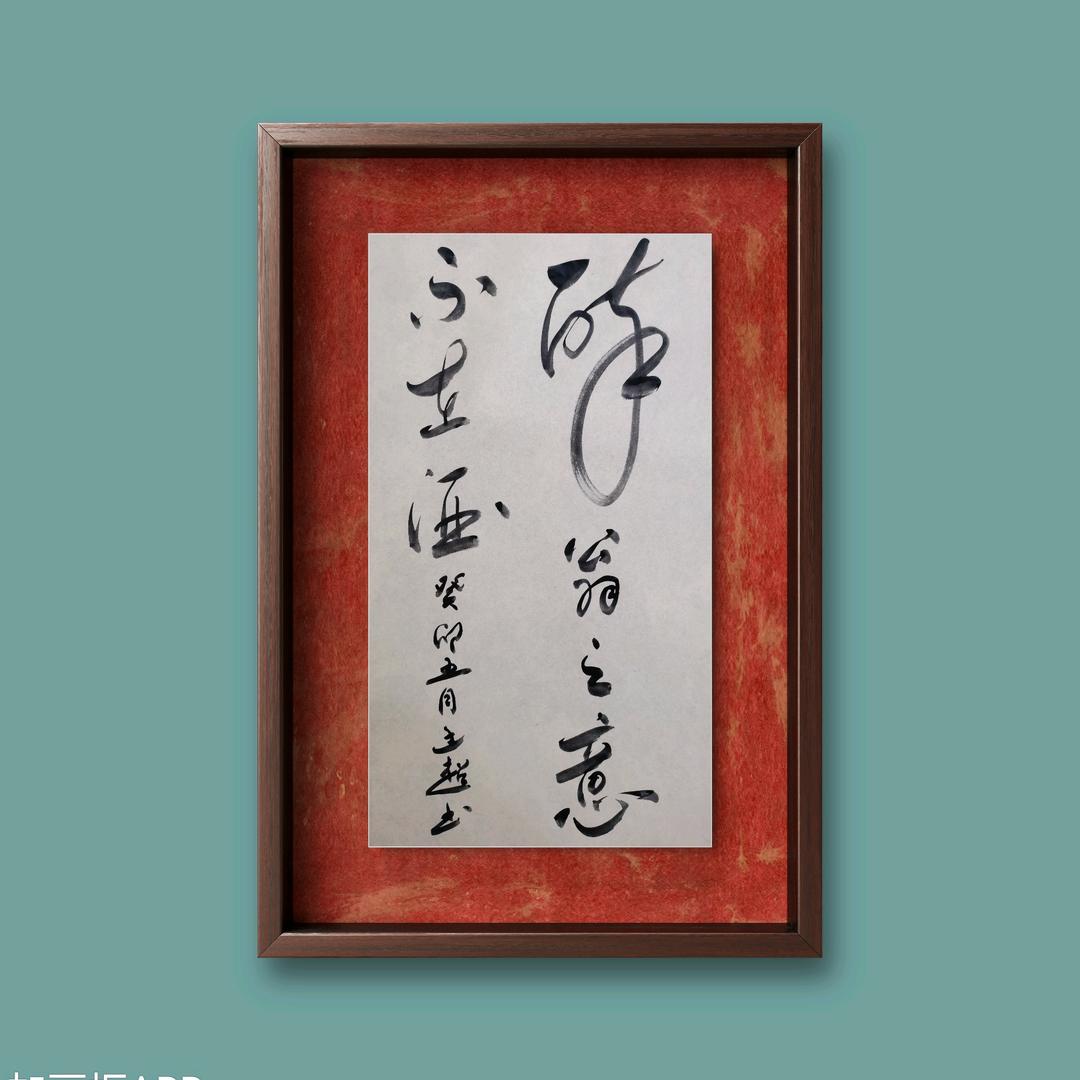 醉翁之意
不在酒
癸卯五月王趱书